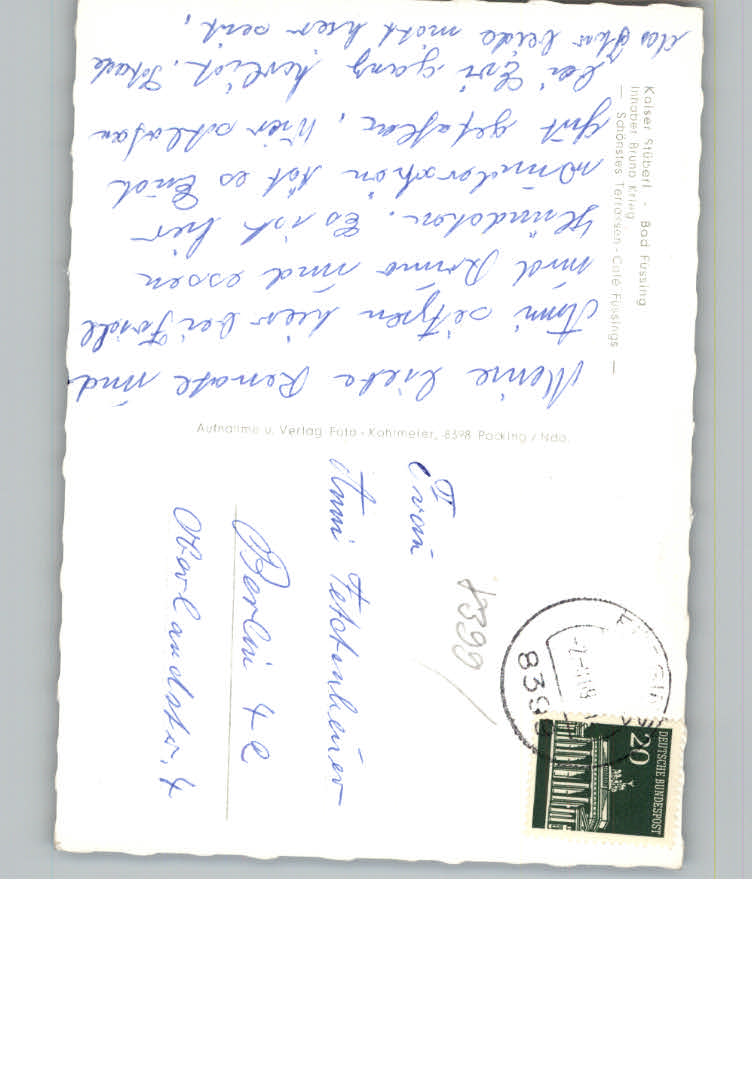 Kaiser Stüberl - Bad Füssing
Inhaber Bruno Krieg
— Schönstes Terrassen-Café Füssings —
Meine liebe Renate und
Anni sitzen hier bei
und Bruno und essen
Hünchen. Es ist hier
wunderschön hat es Euch
gut gefallen, Wir schlafen
bei Evi ganz herlich. Schade
das Ihr beide nicht hier seit,
Aufnahme u. Verlag Foto-Kohlmeier, 8398 Pocking/Ndb.
Frau
Anni
Berlin 42
Oberlandstr. 4
8399
8399
DEUTSCHE BUNDESPOST
20